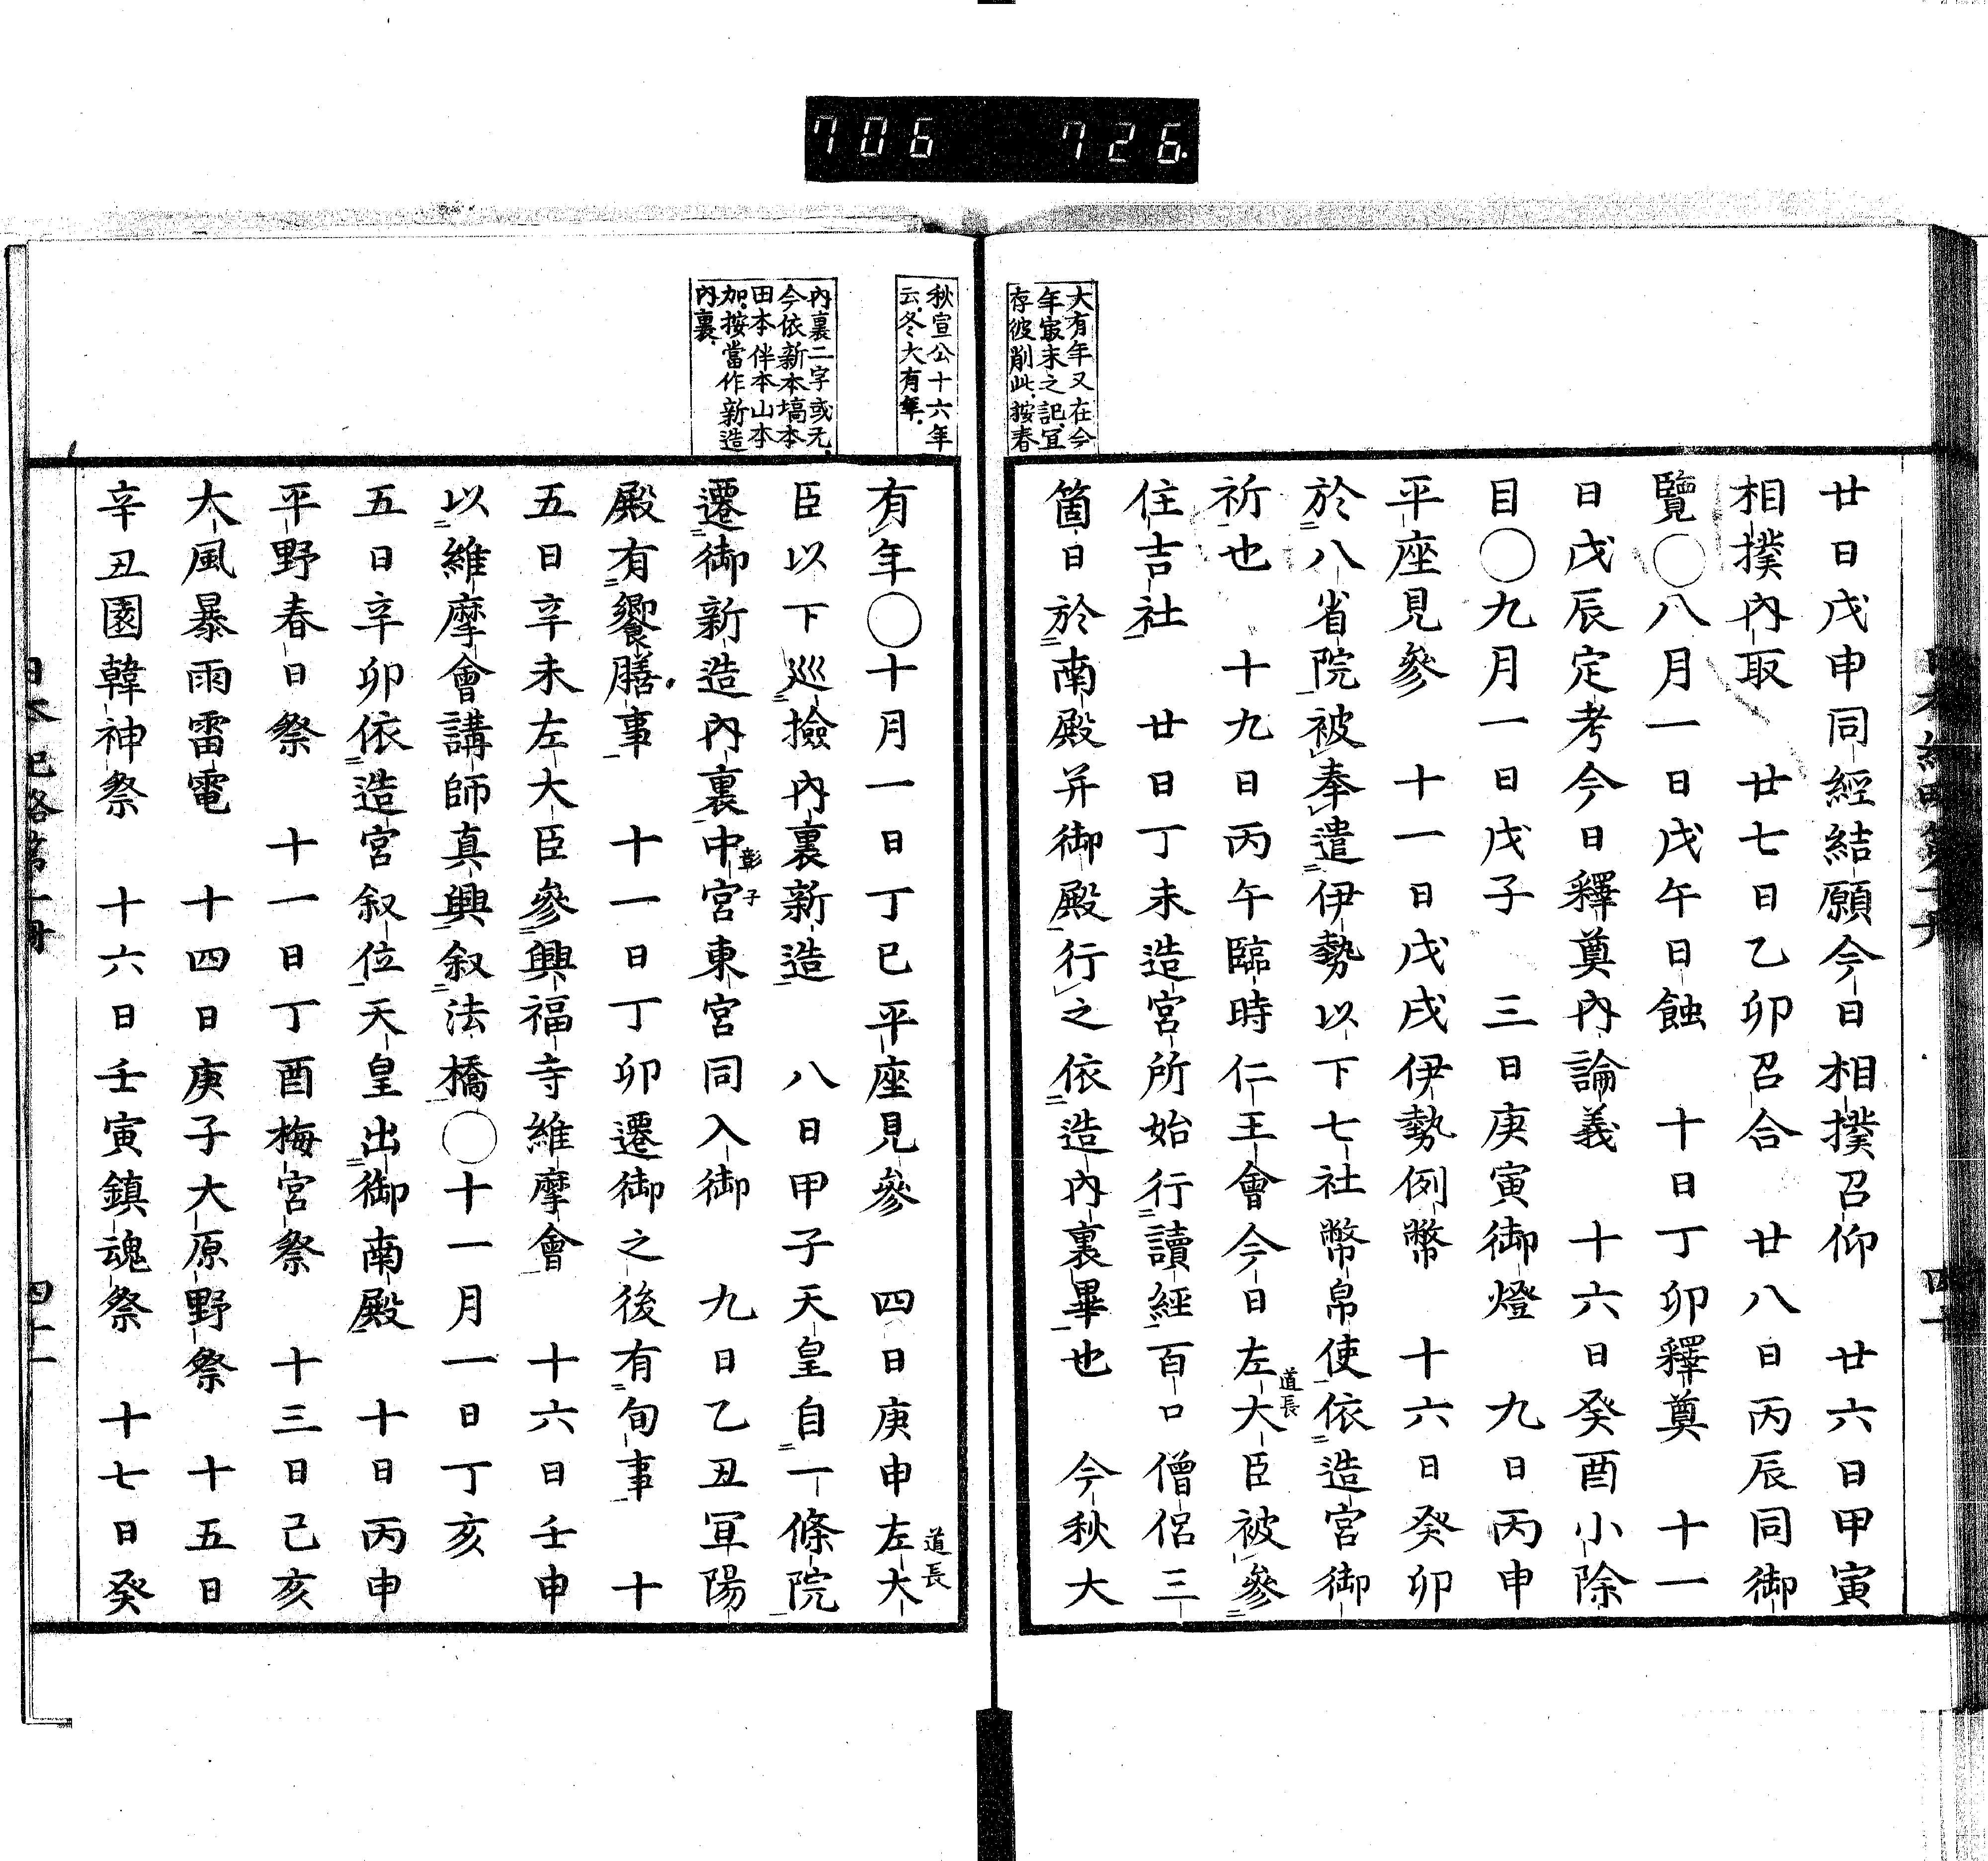 706 726
大有年又在今
年㝡末之記冝
存彼削此按春
廿日戊申同經結願今日相撲召仰　廿六日甲寅
相撲內取　廿七日乙卯召合　廿八日丙辰同御
覽○八月一日戊午日蝕　十日丁卯釋奠　十一
日戊辰定考今日釋奠內論義　十六日癸酉小除
目○九月一日戊子　三日庚寅御燈　九日丙申
平座見參　十一日戊戌伊勢例幣　十六日癸卯
於八省院被奉遣伊勢以下七社幣帛使依造宮御
祈也　十九日丙午臨時仁王會今日左大臣被參
道長
住吉社　廿日丁未造宮所始行讀經百口僧侶三
箇日於南殿并御殿行之依造內裏畢也　今秋大
秋宣公十六年
云冬大有年
內裏二字或无
今依新本塙本
田本伴本山本
加按當作新造
內裏
有年○十月一日丁巳平座見參　四日庚申左大
道長
臣以下巡撿內裏新造　八日甲子天皇自一條院
遷御新造內裏中宮東宮同入御　九日乙丑冝陽
彰子
殿有饗膳事　十一日丁卯遷御之後有旬事　十
五日辛未左大臣參興福寺維摩會　十六日壬申
以維摩會講師真興叙法橋○十一月一日丁亥
五日辛卯依造宮叙位天皇出御南殿　十日丙申
平野春日祭　十一日丁酉梅宮祭　十三日己亥
大風暴雨雷電　十四日庚子大原野祭　十五日
辛丑園韓神祭　十六日壬寅鎮魂祭　十七日癸